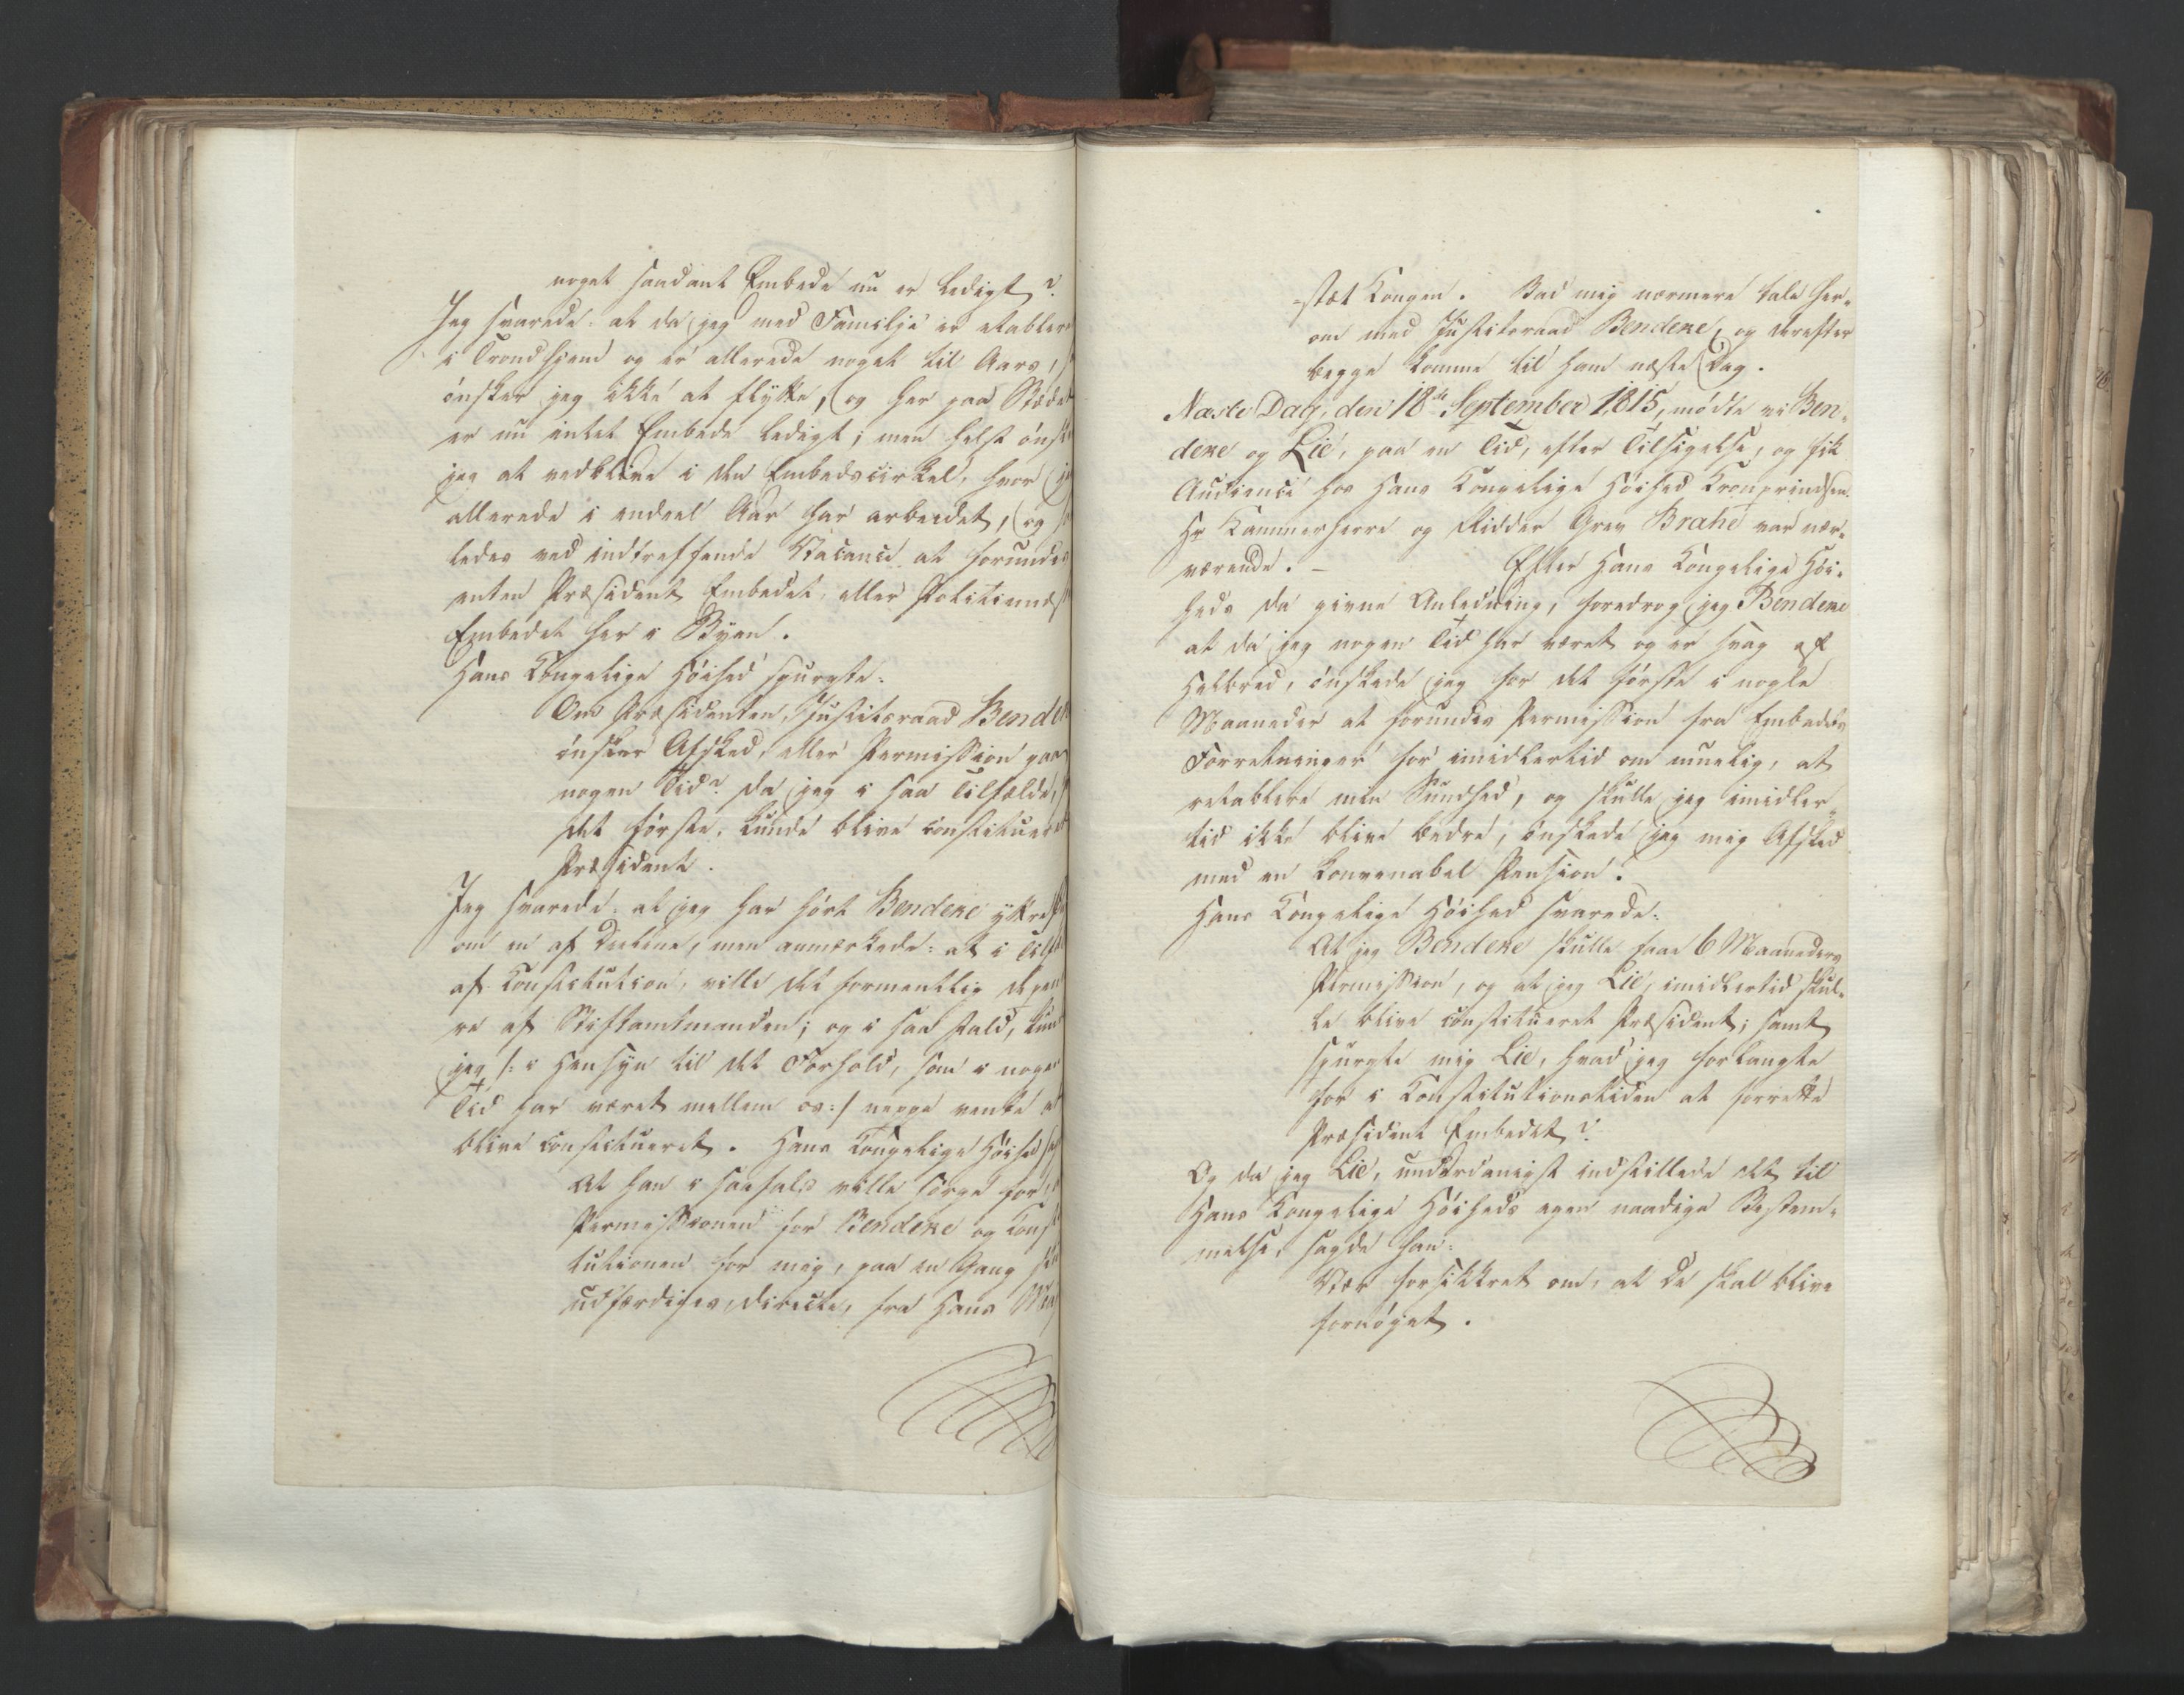 noget saadant Embede nu er ledigt?
Jeg svarede: at da jeg med Familje er etabler
i Trondhjem og er allerede noget til Aars,
ønsker jeg ikke at flytte, og her paa Stæde
er nu intet Embede ledigt; men helst ønsk
jeg at vedblive i den Embedscirkel, hvor
allerede i endeel Aar har arbeidet, og
ledes ved indtreffende Vacance at forundes
enten Præsident Embedet, eller Politiemest
Embedet her i Byen.
Hans Kongelige Høihed spurgte:
Om Præsidenten, Justitsraad Bendek
ønsker Afsked, eller Permission paa
nogen Tid? da jeg i saa Tilfælde,
det første, kunde blive constituer
Præsident.
Jeg svarede: at jeg har hørt Bendeke yttre
om en af Delene, men anmærkede: at i Tilf
af Constitution, ville det formentlig depen
re af Stiftamtmanden; og i saa Fald, kun
jeg /: i Hensyn til det Forhold, som i nogen
Tid har været mellem os :/ neppe vente at
blive constitueret. Hans Kongelige Høihed
At han i saafald ville sørge for,
Permissionen for Bendeke og Const
tutionen for mig, paa en Gang
udfærdiges, directe, fra Hans Maj
-stæt Kongen. Bad mig nærmere tale her-
om med Justitsraad Bendeke, og derefter
begge komme til ham næste Dag.
Næste Dag, den 18de September 1815, mødte vi Ben-
deke og Lie, paa en Tid, efter Tilsigelse, og fik
Audience hos Hans Kongelige Høihed Kronprindsen.
Hr Kammerherre og Ridder Grev Brahe var nær-
værende. – Efter Hans Kongelige Høi-
heds da givne Anledning, foredrog jeg Bendeke
at da jeg nogen Tid har været og er svag af
Helbred, ønskede jeg for det første i nogle
Maaneder at forundes Permission fra Embeds
Forretninger for imidlertid om muelig, at
retablere min Sundhed, og skulle jeg imidler-
tid ikke blive bedre, ønskede jeg mig Afsked
med en konvenabel Pension.
Hans Kongelige Høihed svarede:
At jeg Bendeke skulle faae 6 Maaneders
Permission, og at jeg Lie, imidlertid skul-
le blive constitueret Præsident; samt
spurgte mig Lie, hvad jeg forlangte
for i Constitutionstiden at forrette
Præsident Embedet?
Og da jeg Lie, underdanigst indstillede det til
Hans Kongelige Høiheds egen naadige Bestem-
melse, sagde han:
Vær forsikkret om, at De skal blive
fornøiet.